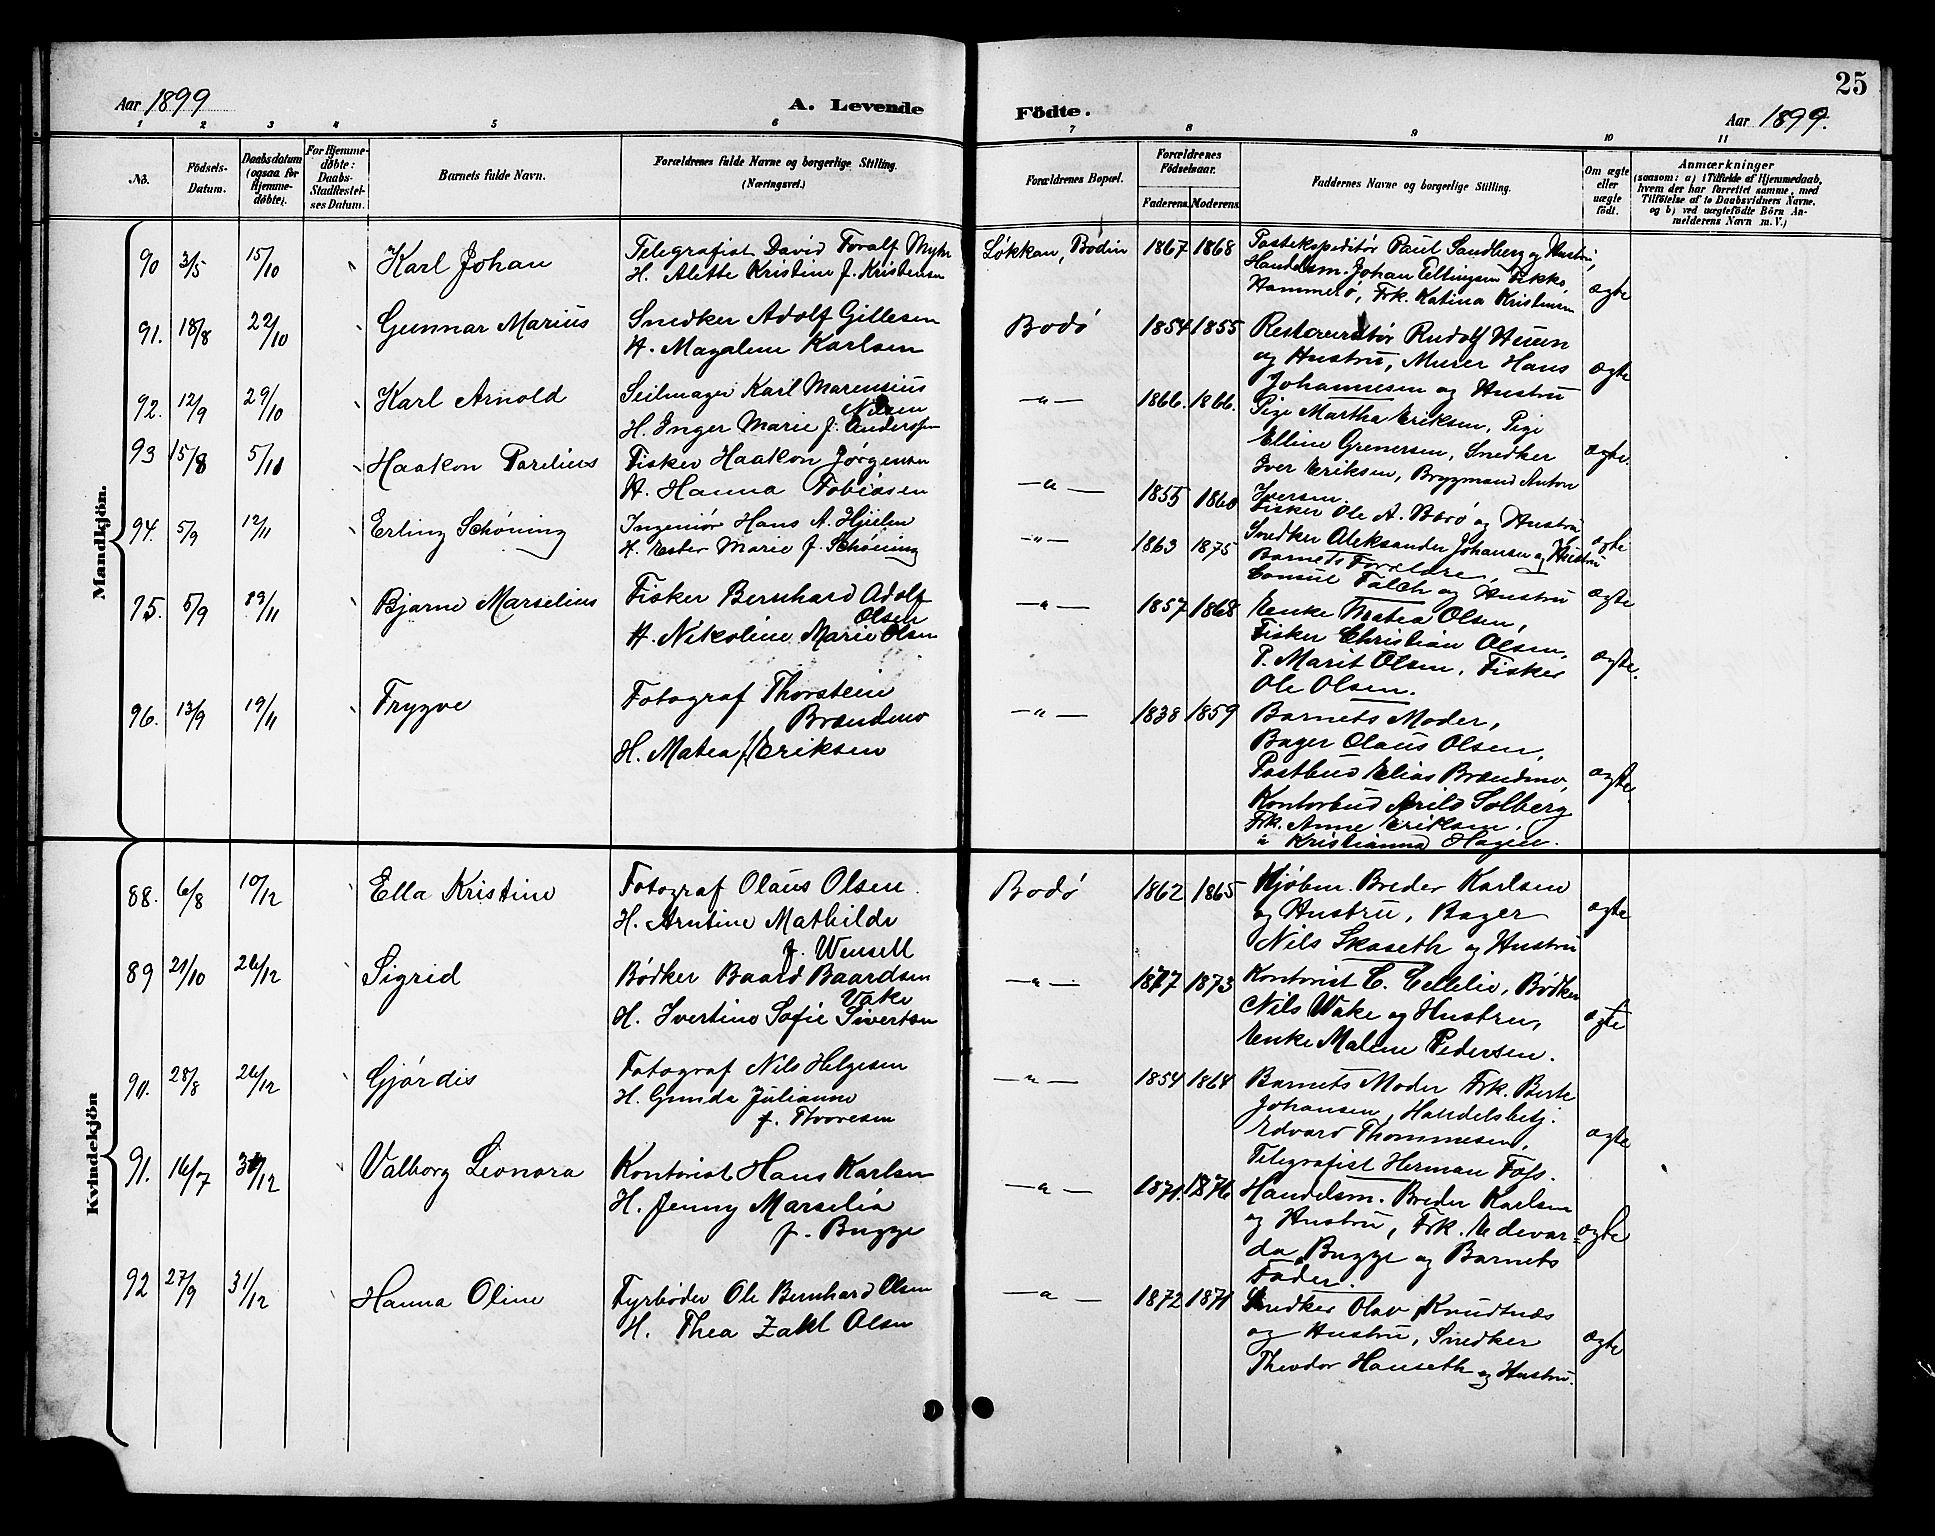 25
Aar 1899
A. Levende
Födte.
Aar 1899.
1 2 3 4 5 6 7 8 9 10 11
No.
Fødsels-
Datum.
Daabsdatum
(ogsaa for
Hjemme-
døbte).
For Hjemme-
døbte:
Daabs-
Stadfæstel-
ses Datum.
Barnets fulde Navn.
Forældrenes fulde Navne og borgerlige Stilling.
(Næringsvei.)
Forældrenes Bopæl.
Forældrenes
Fødselsaar.
Faderens. Moderens.
Faddernes Navne og borgerlige Stilling.
Om ægte
eller
uægte
født.
Anmærkninger
(saasom: a) i Tilfælde af Hjemmedaab,
hvem der har forrettet samme, med
Tilføielse af to Daabsvidners Navne,
og b) ved uægtefødte Börn An-
melderens Navn m. V.)
Mandkjön.
90 3/5 15/10 Karl Johan
Telegrafist David Toralf Myhr
H. Alette Kristine f. Kristensen
Løkkan, Bodin 1867 1868
Postekspeditør Paul Sandberg og Hustru,
Handelsm. Johan Ellingsen
Hammerø, Frk. Katina Kristensen
ægte
91. 18/8 22/10 Gunnar Marius
Snedker Adolf Gillesen
H. Magalene Karlsen
Bodø 1854 1855
Restauratør Rudolf
og Hustru, Murer Hans
Johannesen og Hustru
ægte
92. 12/9 29/10 Karl Arnold
Seilmager Karl Marensius
Nilsen
H. Inger Marie f. Anderssen
—"— 1866. 1866.
Pige Martha Eriksen, Pige
Elline Grenersen, Snedker
Iver Eriksen, Bryggmand Anton
Iversen.
ægte.
93 15/8 5/11 Haakon Parelius
Fisker Haakon Jørgensen
H. Hanna Tobiasen
—"— 1855 1860
Fisker Ole A. Barø og Hustru
Snedker Aleksander Johansen og Hustru
ægte
94. 5/9 12/11 Erling Schöning
Ingeniör Hans A. Hjielm
H. Ester Marie f. Schöning
—"— 1863 1875
Barnets Forældre,
Consul Falch og Hustru
ægte
95. 5/9 19/11 Bjarne Marselius
Fisker Bernhard Adolf
Olsen
H. Nikoline Marie Olsen
—"— 1857 1868
Enke Matea Olsen,
Fisker Christian Olsen,
P. Marit Olsen, Fisker
Ole Olsen.
ægte.
96. 13/9 19/11 Trygve
Fotograf Thorstein
Brændmo
H. Matea f. Eriksen
—"— 1838 1859
Barnets Moder,
Bager Olaus Olsen,
Postbud Elias Brændmo,
Kontorbud Arild Solberg
Frk. Anne Eriksen,
" Kristianna Hagen.
ægte.
Kvindekjön
88. 6/8 10/12 Ella Kristine
Fotograf Olaus Olsen.
H. Arntine Mathilde
f. Wensell
Bodø 1862 1865
Kjøbm. Breder Karlsen
og Hustru, Bager
Nils Skaseth og Hustru
ægte
89 21/10 26/12 Sigrid
Bødker Baard Baardsen
Vake
H. Ivertine Sofie Sivertsen
—"— 1877 1873
Kontorist C. Bødker
Nils Wake og Hustru,
Enke Malene Pedersen.
ægte
90. 28/8 26/12 Gjördis
Fotograf Nils Helgesen
H. Gunda Julianne
f. Thoresen
—"— 1854 1864
Barnets Moder Frk. Berte
Johansen, Handelsbetj.
Edvard Thommesen,
Telegrafist Herman Foss.
ægte
91. 16/7 31/12 Valborg Leonora
Kontorist Hans Karlsen
H. Jenny Marselia
f. Bugge
—"— 1871. 1876
Handelsm. Breder Karlsen
og Hustru, Frk. Edevar-
da Bugge og Barnets
Fader.
ægte
92 27/9 31/12 Hanna Oline
Fyrbøder Ole Bernhard Olsen
H. Thea Zakl Olsen
—"— 1872 1871
Snedker Olav Knudtnæs
og Hustru, Snedker
Theodor Hanseth og Hustru.
ægte